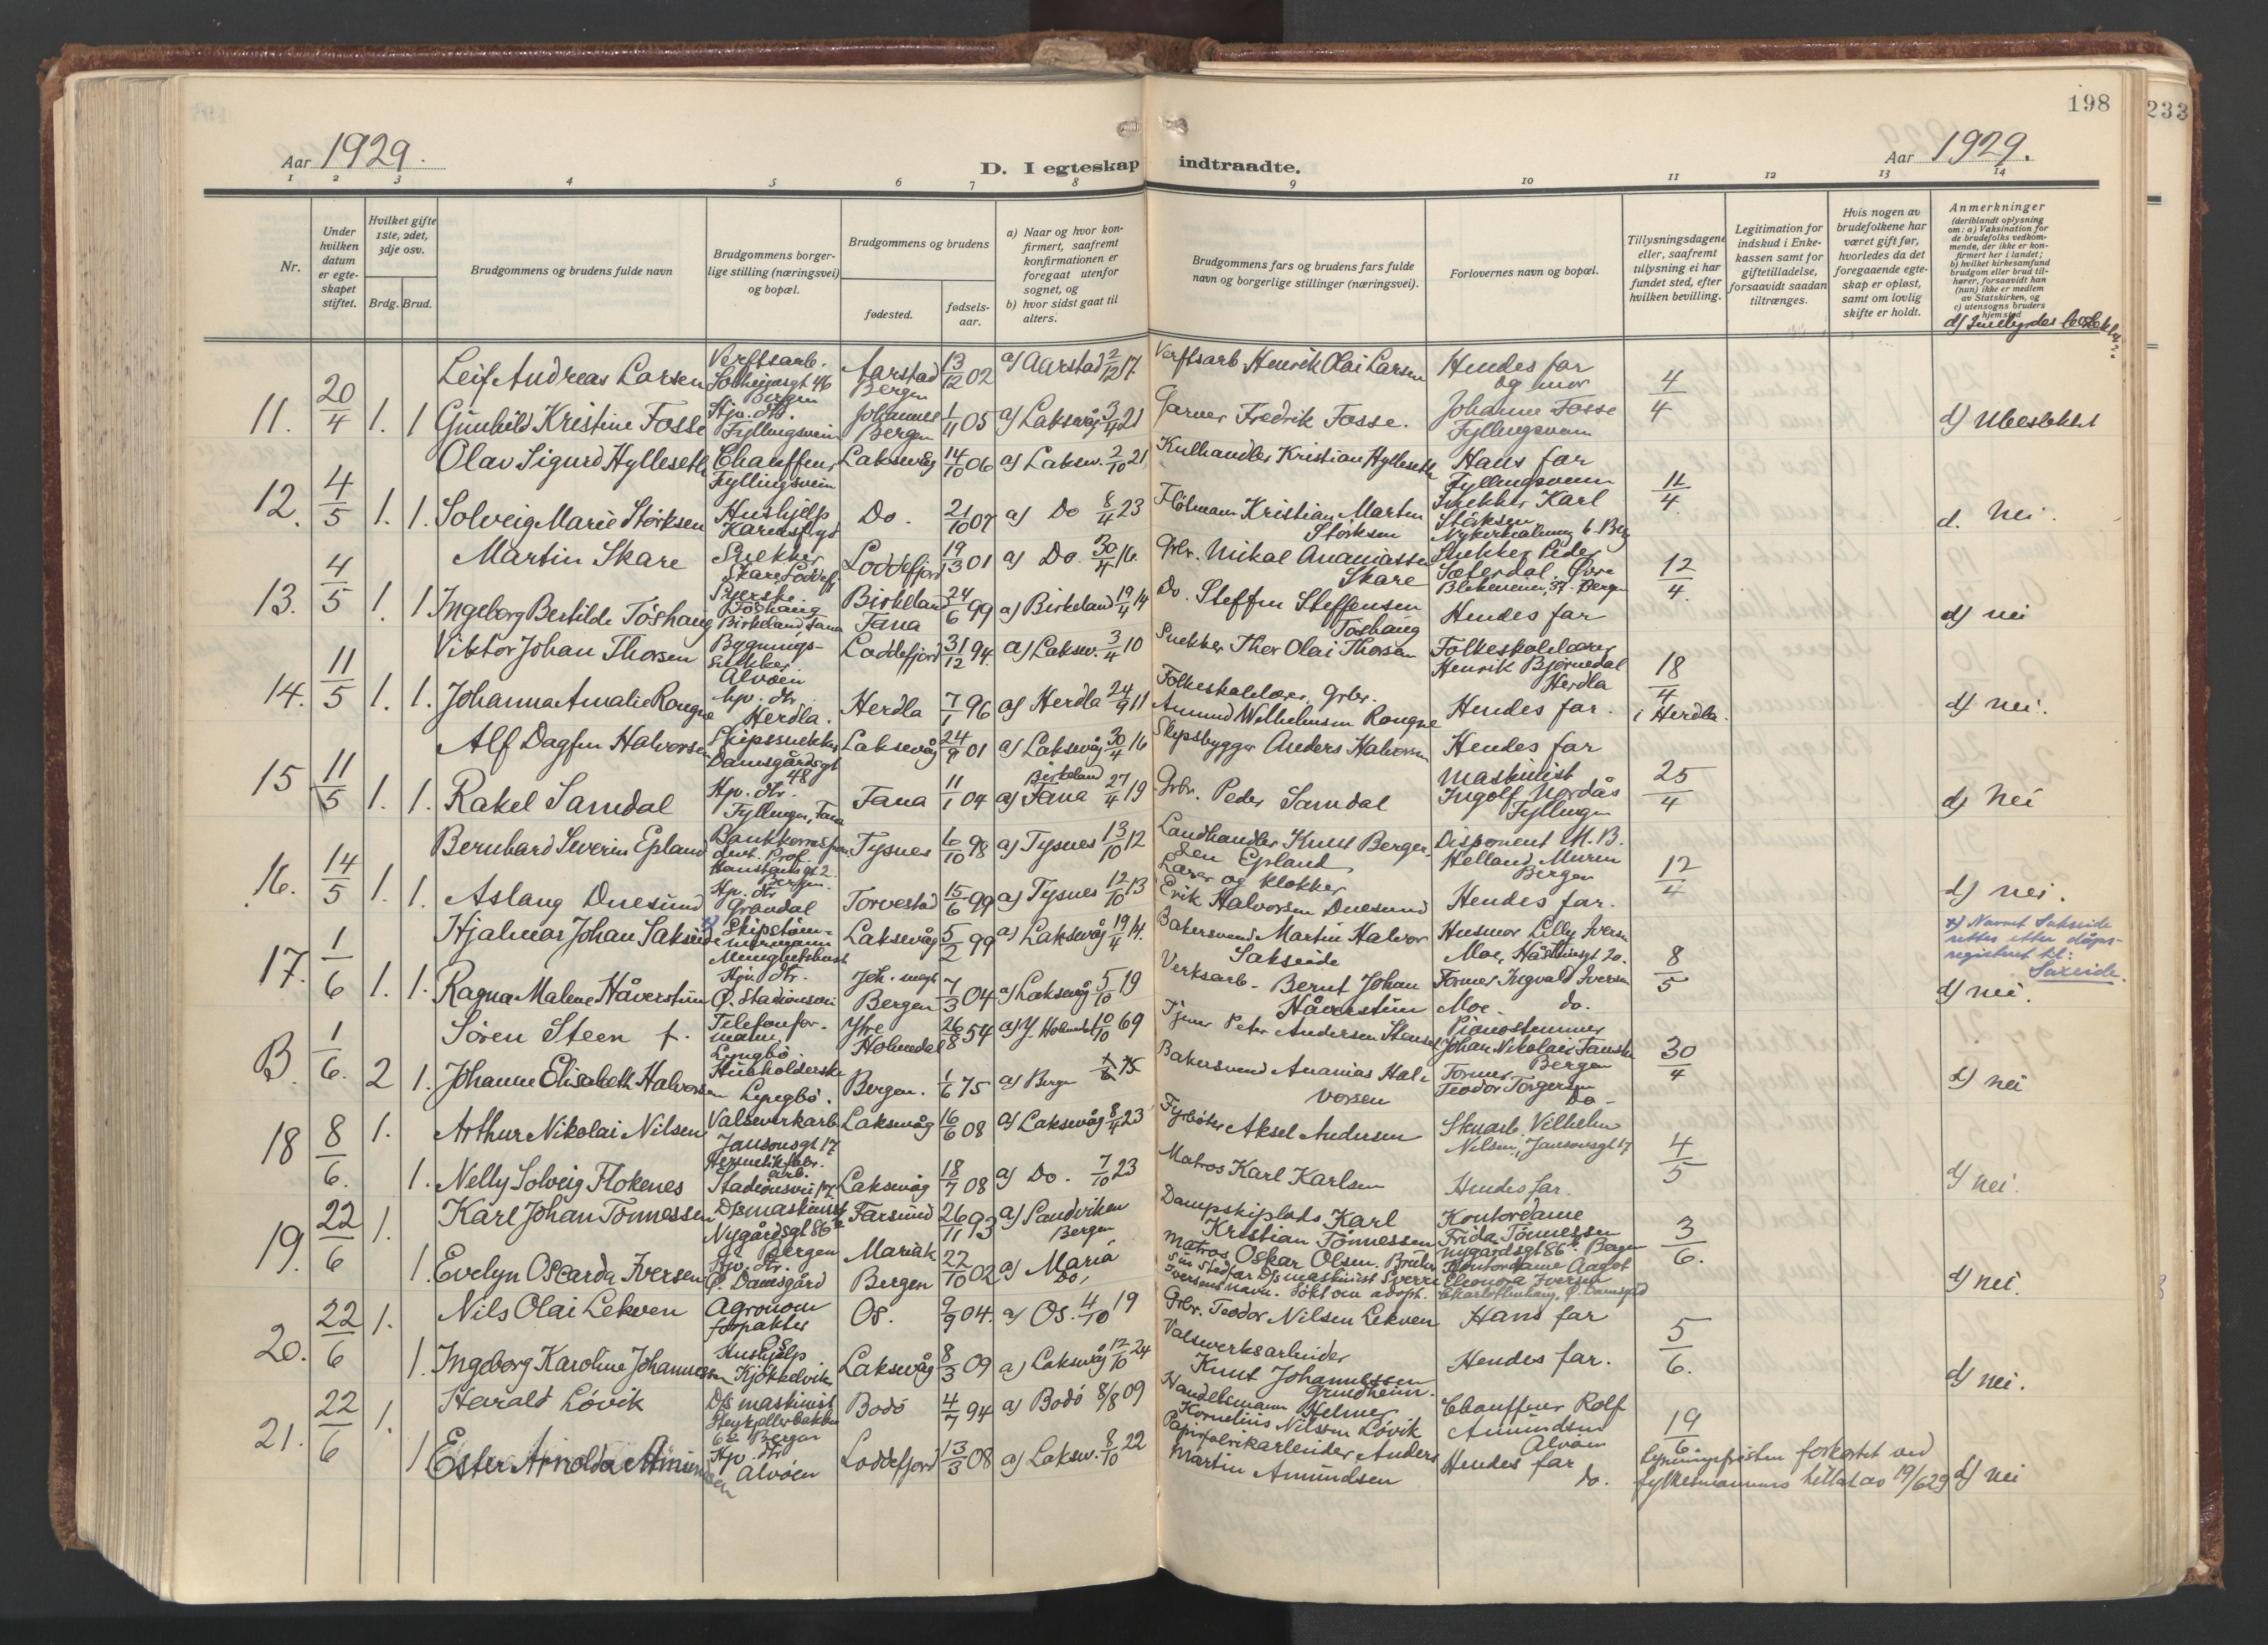 198
233
Aar 1929.
D. I egteskap indtraadte.
Aar 1929.
1 2 3 4 5 6 7 8 9 10 11 12 13 14
Nr.
Under hvilken datum er egteskapet stiftet.
Hvilket gifte 1ste, 2det, 3dje osv.
Brdg. Brud.
Brudgommens og brudens fulde navn
Brudgommens borgerlige stilling (næringsvei) og bopæl.
Brudgommens og brudens
fødested.
fødselsaar.
a) Naar og hvor konfirmert, saafremt konfirmationen er foregaat utenfor sognet, og
b) hvor sidst gaat til alters.
Brudgommens fars og brudens fars fulde navn og borgerlige stillinger (næringsvei).
Forlovernes navn og bopæl.
Tillysningsdagene eller, saafremt tillysning ei har fundet sted, efter hvilken bevilling.
Legitimation for indskud i Enkekassen samt for giftetilladelse, forsaavidt saadan tiltrænges.
Hvis nogen av brudefolkene har været gift før, hvorledes da det foregaaende egteskap er opløst, samt om lovlig skifte er holdt.
Anmerkninger
(deriblandt oplysning om: a) Vaksination for de brudefolks vedkommende, der ikke er konfirmert her i landet; b) hvilket kirkesamfund brudgom eller brud tilhører, forsaavidt han (hun) ikke er medlem av Statskirken, og c) utensogns bruders hjemsted
11. 20/4 1. 1
Leif Andreas Larsen Verftsarb. Solheimsgt 46 Bergen Aarstad Bergen 13/12 02 a) Aarstad 2/12 17. Verftsarb. Henrik Olai Larsen Hendes far og mor 4/4
Gunhild Kristine Fosse Hjv. dtr. Fyllingsveien Johannes Bergen 1/11 05 a) Laksevåg 3/4 21 Garver Fredrik Fosse. Johanne Fosse Fyllingsveien d) Ubeslektet
12. 4/5 1. 1.
Olav Sigurd Hylleseth Chauffeur, Fyllingsveien Laksevåg 14/10 06 a) Laksev. 2/10 21 Kulhandler Kristian Hylleseth Hans far Fyllingsveien 11/4.
Solveig Marie Størksen Hushjelp Do. 21/10 07 a) Do 8/4 23 Kristian Martin Størksen Snekker Karl d. Nei.
13. 4/5 1. 1
Martin Skare Snekker Skare Loddefj. Loddefjord 19/13 01 a) Do. 30/4 16. Grbr. Mikal Ananiassen Skare Snekker Peder Sæterdal, Øvre Blekeveien, 37. Bergen 12/4.
Ingeborg Bertilde Töshaug Syerske. Töshaug Birkeland Fana Birkeland Fana 24/6 99 a) Birkeland 19/4 14 Do. Steffen Steffensen Töshaug Hendes far d) nei
14. 11/5 1. 1.
Viktor Johan Thorsen Bygningssnekker. Alvøen Loddefjord 31/12 94. a) Laksev. 3/4 10 Snekker Thor Olai Thorsen Folkeskolelærer Henrik Bjørnedal Herdla 18/4 i Herdla.
Johanna Amalie Rongve hjv. dtr. Herdla. Herdla 7/1 96 a) Herdla 24/9 11 Folkeskolelærer, grbr. Amund Wilhelmsen Rongve Hendes far. d) nei.
15 11/5 1. 1.
Alf Dagfin Halvorsen Skipssnekker Damsgårdsgt 48 Laksevåg 24/9 01 a) Laksevåg 30/4 16 Skipsbygger Anders Halvorsen Hendes far 25/4
Rakel Samdal Hjv. dtr. Fyllingen, Fana Fana 11/1 04 a) Birkeland Fana 27/4 19 Grbr. Peder Samdal Maskinist Ingolf Nordås Fyllingen d) Nei
16. 14/5 1. 1.
Bernhard Severin Epland Bankkorrespondent. Prof. Hansteens gt 2. Bergen. Tysnes 6/10 98 a) Tysnes 13/10 12 Landhandler Knut Bergersen Epland Disponent M. B. Helland, Muren Bergen 12/4
Aslaug Duesund Hjv. dtr Grandal Torvestad 15/6 99 a) Tysnes 12/10 13 Lærer og klokker Erik Halvorsen Duesund Hendes far. d) nei.
17. 1/6 1. 1.
Hjalmar Johan Sakseide x) Skipstømmermann Laksevåg 5/2 99 a) Laksevåg 19/4 14. Bakersvend Martin Halvor Sakseide Husmor Lilly Iversen Moe, 8/5
x) Navnet Sakseide rettes etter dåpsregisteret til: Saxeide.
Ragna Malene Håverstun Hjv. dtr. Ø. Stadionsvei Joh. Bergen 7/3 04 a) Laksevåg 5/10 19 Verksarb. Bernt Johan Håverstun Former Ingvald Iversen Moe. do. d) nei.
B. 1/6. 2 1.
Søren Steen f. Telefonformann, Lyngbö. Ytre Holmedal 26/8 54 a) Y. Holmedal 10/10 69 Peter Andersen Pianostemmer Johan Nikolai Bergen 30/4
Johanne Elisabeth Halvorsen Husholderske Lyngbö. Bergen. 1/6 75 a) Bergen Bakersvend Ananias Halvorsen Former Teodor Torgersen Do - d) nei
18 8/6. 1. 1.
Arthur Nikolai Nilsen Valseverkarb. Jansonsgt 17 Laksevåg 16/6 08 a) Laksevåg 8/4 23 Fyrbøter Aksel Andersen Vilhelm Nilsen, Jansonsgt 17 4/5
Nelly Solveig Flokenes Hermetikfabr. arb. Laksevåg 18/7 08 a) Do. 7/10 23 Matros Karl Karlsen Hendes far. d) nei.
19. 22/6 1. 1.
Karl Johan Tønnessen D/s maskinist Nygårdsgt 86 b Bergen Farsund 26/11 93 a) Sandviken Bergen Karl Kristian Tønnessen Kontordame Frida Tønnessen Nygårdsgt 86 b. Bergen 3/6.
Evelyn Oscarda Iversen Hjv. dtr. Ø. Damsgård Mariak Bergen 22/10 02 a) Maria Do, Matros Oskar Olsen. Bruker sin stedfar D/s maskinist Sverre Iversens navn. Søkt om adopt. Kontordame Aagot Eleonora Iversen d) nei.
20. 22/6 1. 1
Nils Olai Lekven Agronom forpakter Os Os. 9/9 04. a) Os. 4/10 19 Grbr. Teodor Nilsen Lekven Hans far 5/6.
Ingeborg Karoline Johannessen Hushjelp Kjökkelvik Laksevåg 8/3 09 a) Laksevåg 12/10 24 Valseverksarbeider Knut Johannessen Grindheim. Hendes far. d) nei.
21. 22/6 1. 1
Harald Løvik D/s maskinist Bergen Bodö 4/7 94 a) Bodö 8/8 09 Handelsmann Helmer Kornelius Nilssen Løvik Chauffeur Rolf Amundsen Alvøen 19/6.
Ester Arnolda Amundsen Hjv. dtr Alvöen Loddefjord 13/3 08 a) Laksev. 8/10 22 Papirfabrikarbeider Anders Martin Amundsen Hendes far do. Lysningsfristen forkortet ved fylkesmannens tillat av 19/6 29 d) nei